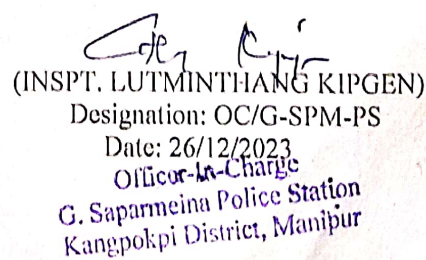 (INSPT. LUTMINTHANG KIPGEN)
Designation: OC/G-SPM-PS
Date: 26/12/2023
Officer-In-Charge
G. Saparmeina Police Station
Kangpokpi District, Manipur